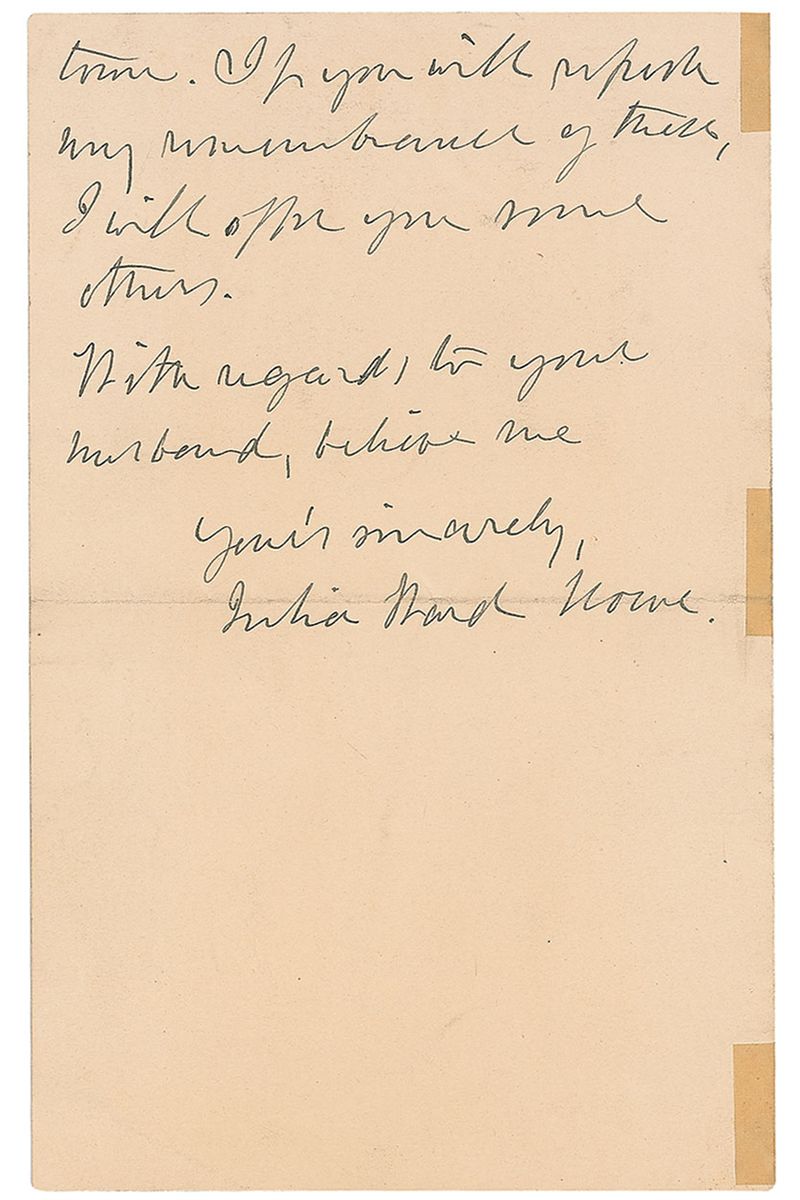 town. If you will refresh
my remembrance of these,
I will offer you some
others.
With regards to your
husband, believe me
your's sincerely,
Julia Ward Howe.